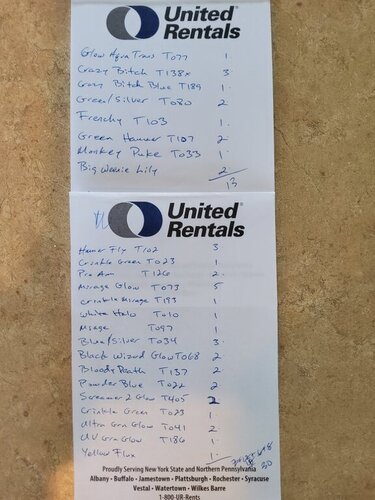 United
Rentals
Glow Aqua Trans T077 1
Crazy Bitch T138x 3
Crazy Bitch Blue T189 1
Green/Silver T080 2
Frenchy T103 1
Green Hammer T107 2
Monkey Puke T033 1
Big Weenie Lily 2
13
United
Rentals
Hammer Fly T102 3
Crinkle Green T023 1
Pro Am T126 2
Mirage Glow T073 5
Crinkle Mirage T193 1
White Halo T010 1
Mirage T097 1
Blue/Silver T034 3
Black Wizard Glow T068 2
Bloody Death T137 2
Powder Blue T022 2
Screamer 2 Glow T405 2
Crinkle Green T023 1
Ultra Grn Glow T041 2
UV Grn Glow T186 1
Yellow Flux 1
30
Proudly Serving New York State and Northern Pennsylvania
Albany • Buffalo • Jamestown • Plattsburgh • Rochester • Syracuse
Vestal • Watertown • Wilkes Barre
1-800-UR-Rents